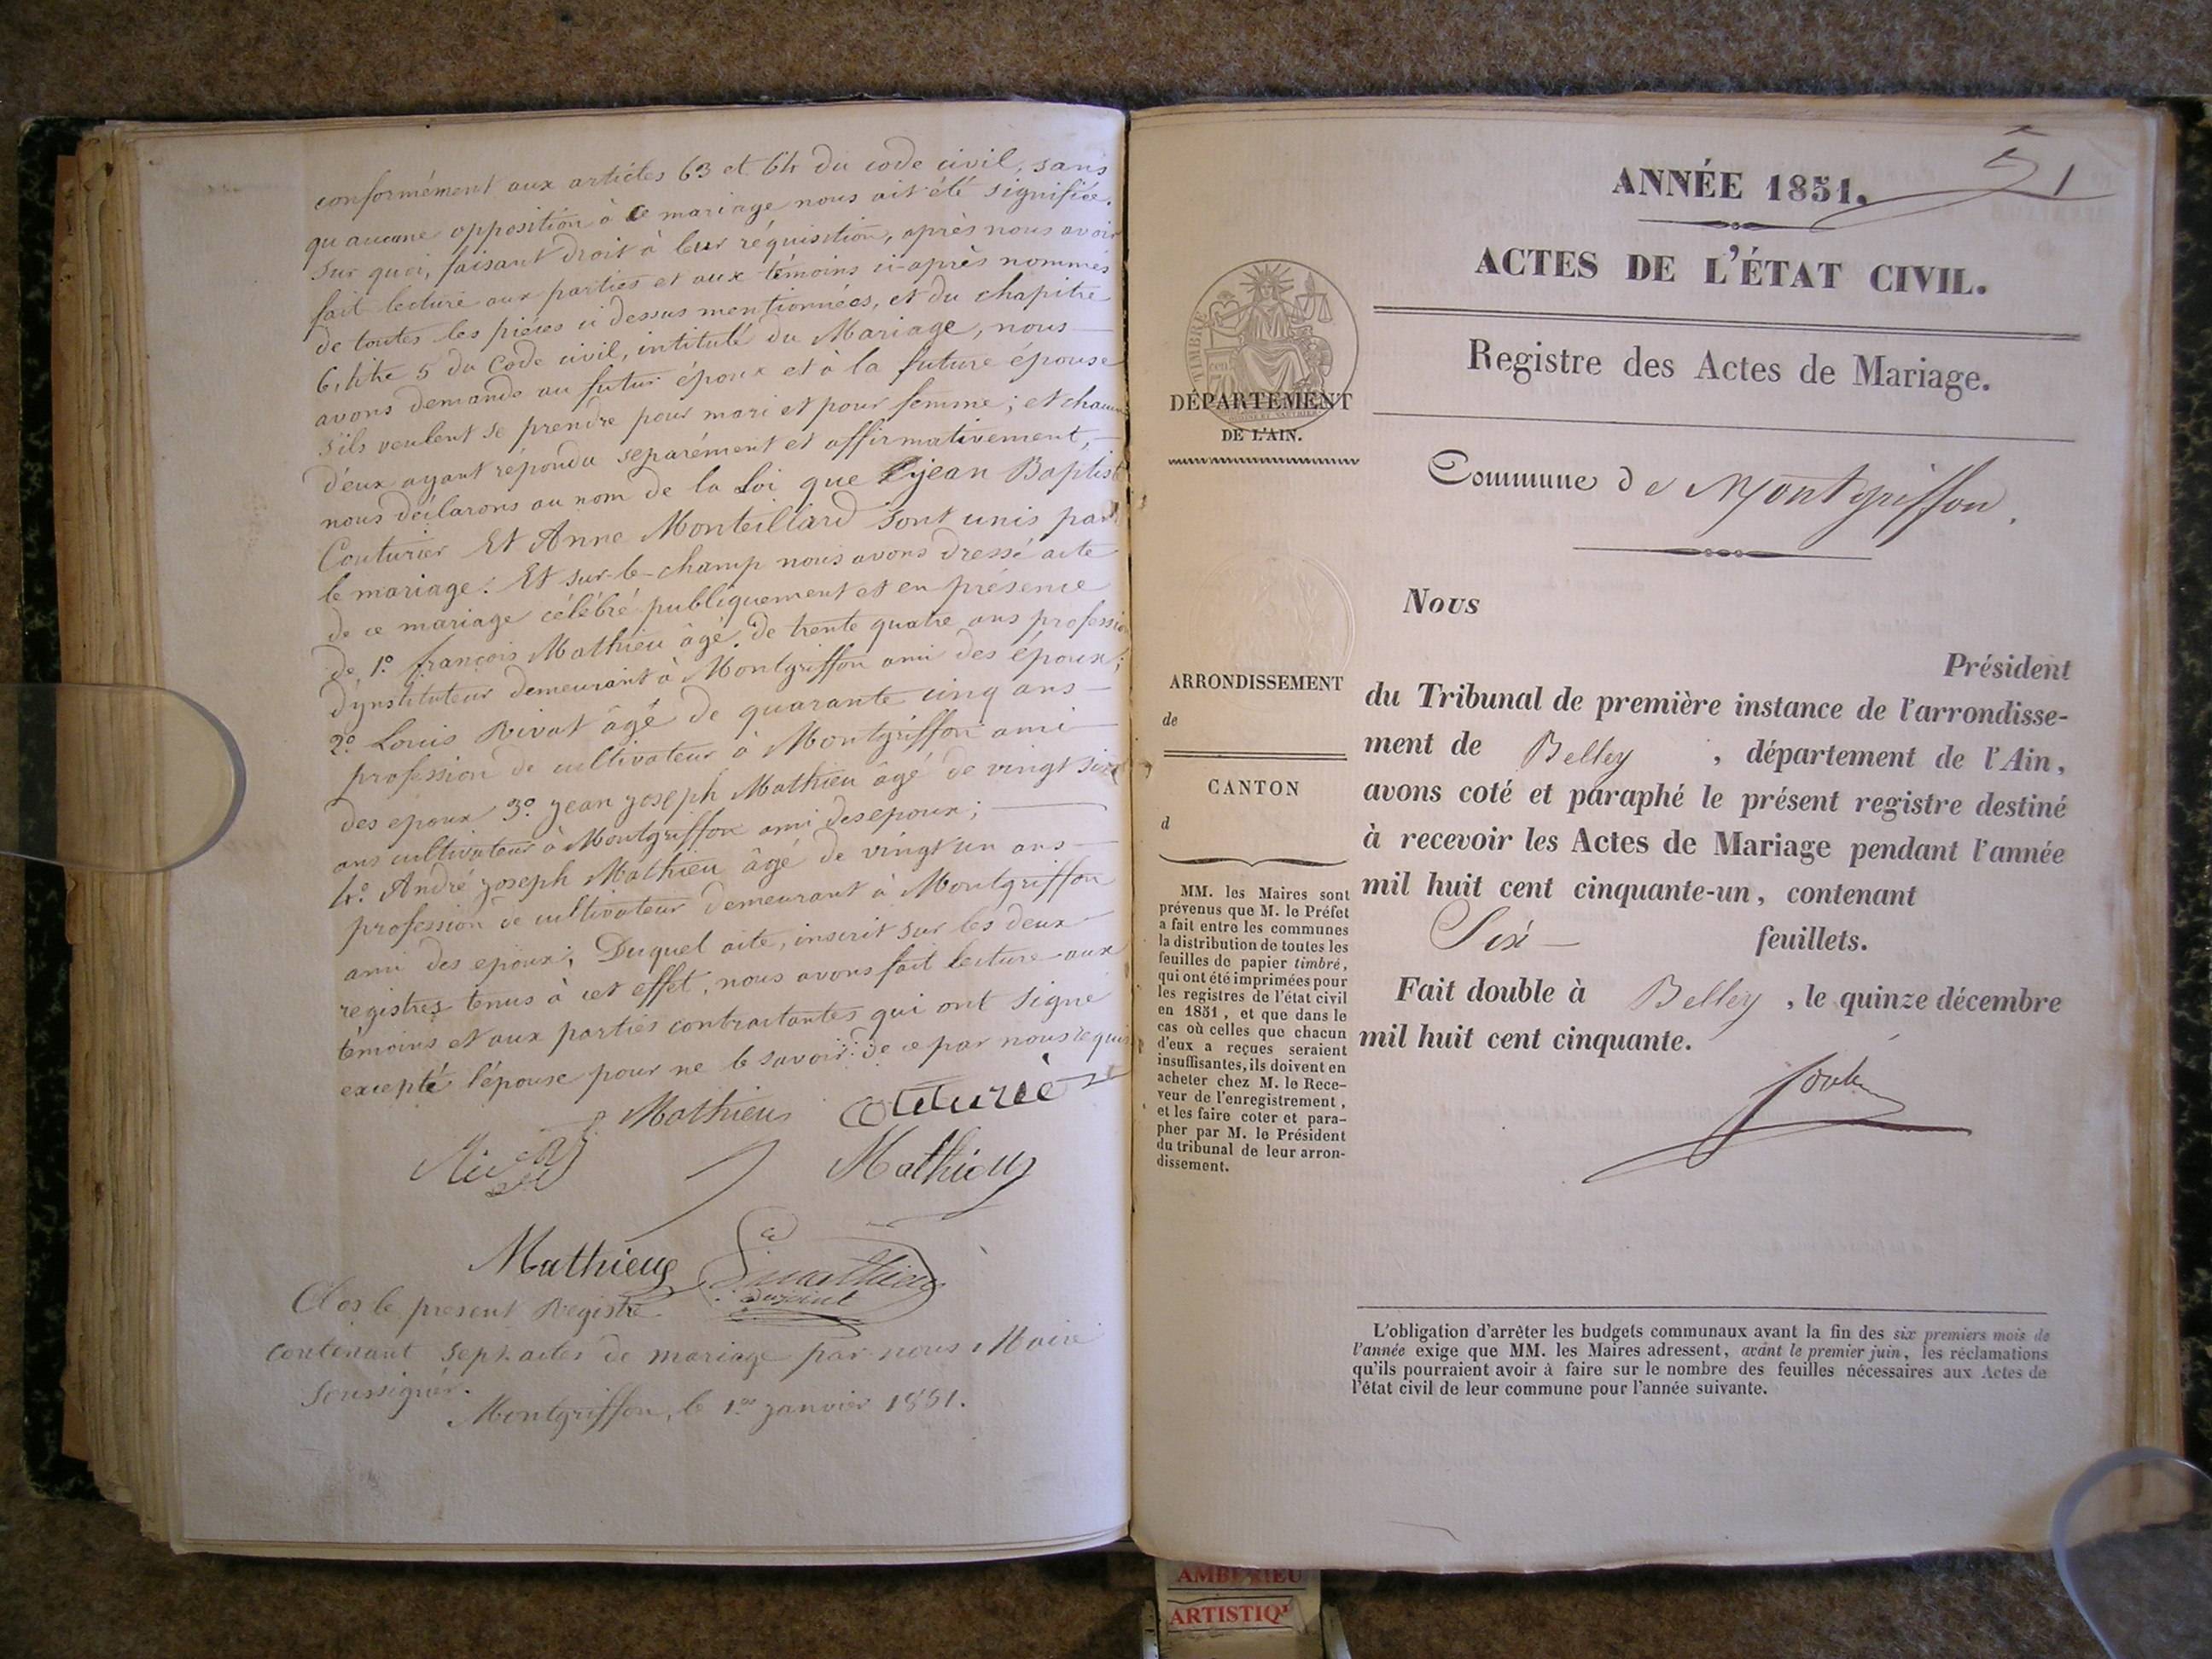 conformément aux articles 63 et 64 du code civil, sans
qu'aucune opposition à ce mariage nous ait été signifiée.
Sur quoi, faisant droit à leur réquisition, après nous avoir
fait lecture aux parties et aux témoins ci-après nommés
de toutes les pièces ci dessus mentionnées, et du chapitre
6, titre 5 du Code civil, intitulé du Mariage, nous
avons demandé au futur époux et à la future épouse
s'ils veulent se prendre pour mari et pour femme; et chacun
d'eux ayant répondu separément et affirmativement,
nous déclarons au nom de la Loi que jean Baptiste
Couturier Et Anne Monteillard sont unis par
le mariage. Et sur-le-champ nous avons dressé acte
de ce mariage célébré publiquement et en présence
de 1.° françois Mathieu âgé de trente quatre ans profession
d'ynstituteur demeurant à Montgriffon ami des époux;
2.° Louis Rivat âgé de quarante cinq ans
profession de cultivateur à Montgriffon ami
des epoux 3.° jean joseph Mathieu âgé de vingt six
ans cultivateur à Montgriffon ami des epoux;
4.° André joseph Mathieu âgé de vingt un ans
profession de cultivateur demeurant à Montgriffon
ami des epoux; Duquel acte, inscrit sur les deux
registres tenus à cet effet, nous avons fait lecture aux
témoins et aux parties contractantes qui ont signé
excepté l'épouse pour ne le savoir de ce par nous requis
Mathieu
Mathieu
Mathieu
Clos le present Registre
contenant sept actes de mariage par nous Maire
soussigné.
Montgriffon, le 1.er janvier 1851.
ANNÉE 1851.
51
ACTES DE L'ÉTAT CIVIL.
Registre des Actes de Mariage.
TIMBRE
DÉPARTEMENT
DE L'AIN.
Commune de Montgriffon.
Nous
Président
ARRONDISSEMENT
de
CANTON
d
du Tribunal de première instance de l'arrondisse-
ment de Belley, département de l'Ain,
avons coté et paraphé le présent registre destiné
à recevoir les Actes de Mariage pendant l'année
mil huit cent cinquante-un, contenant
Six feuillets.
Fait double à Belley, le quinze décembre
mil huit cent cinquante.
MM. les Maires sont
prévenus que M. le Préfet
a fait entre les communes
la distribution de toutes les
feuilles de papier timbré,
qui ont été imprimées pour
les registres de l'état civil
en 1851, et que dans le
cas où celles que chacun
d'eux a reçues seraient
insuffisantes, ils doivent en
acheter chez M. le Rece-
veur de l'enregistrement,
et les faire coter et para-
pher par M. le Président
du tribunal de leur arron-
dissement.
L'obligation d'arrêter les budgets communaux avant la fin des six premiers mois de
l'année exige que MM. les Maires adressent, avant le premier juin, les réclamations
qu'ils pourraient avoir à faire sur le nombre des feuilles nécessaires aux Actes de
l'état civil de leur commune pour l'année suivante.
AMBERIEU
ARTISTIQ